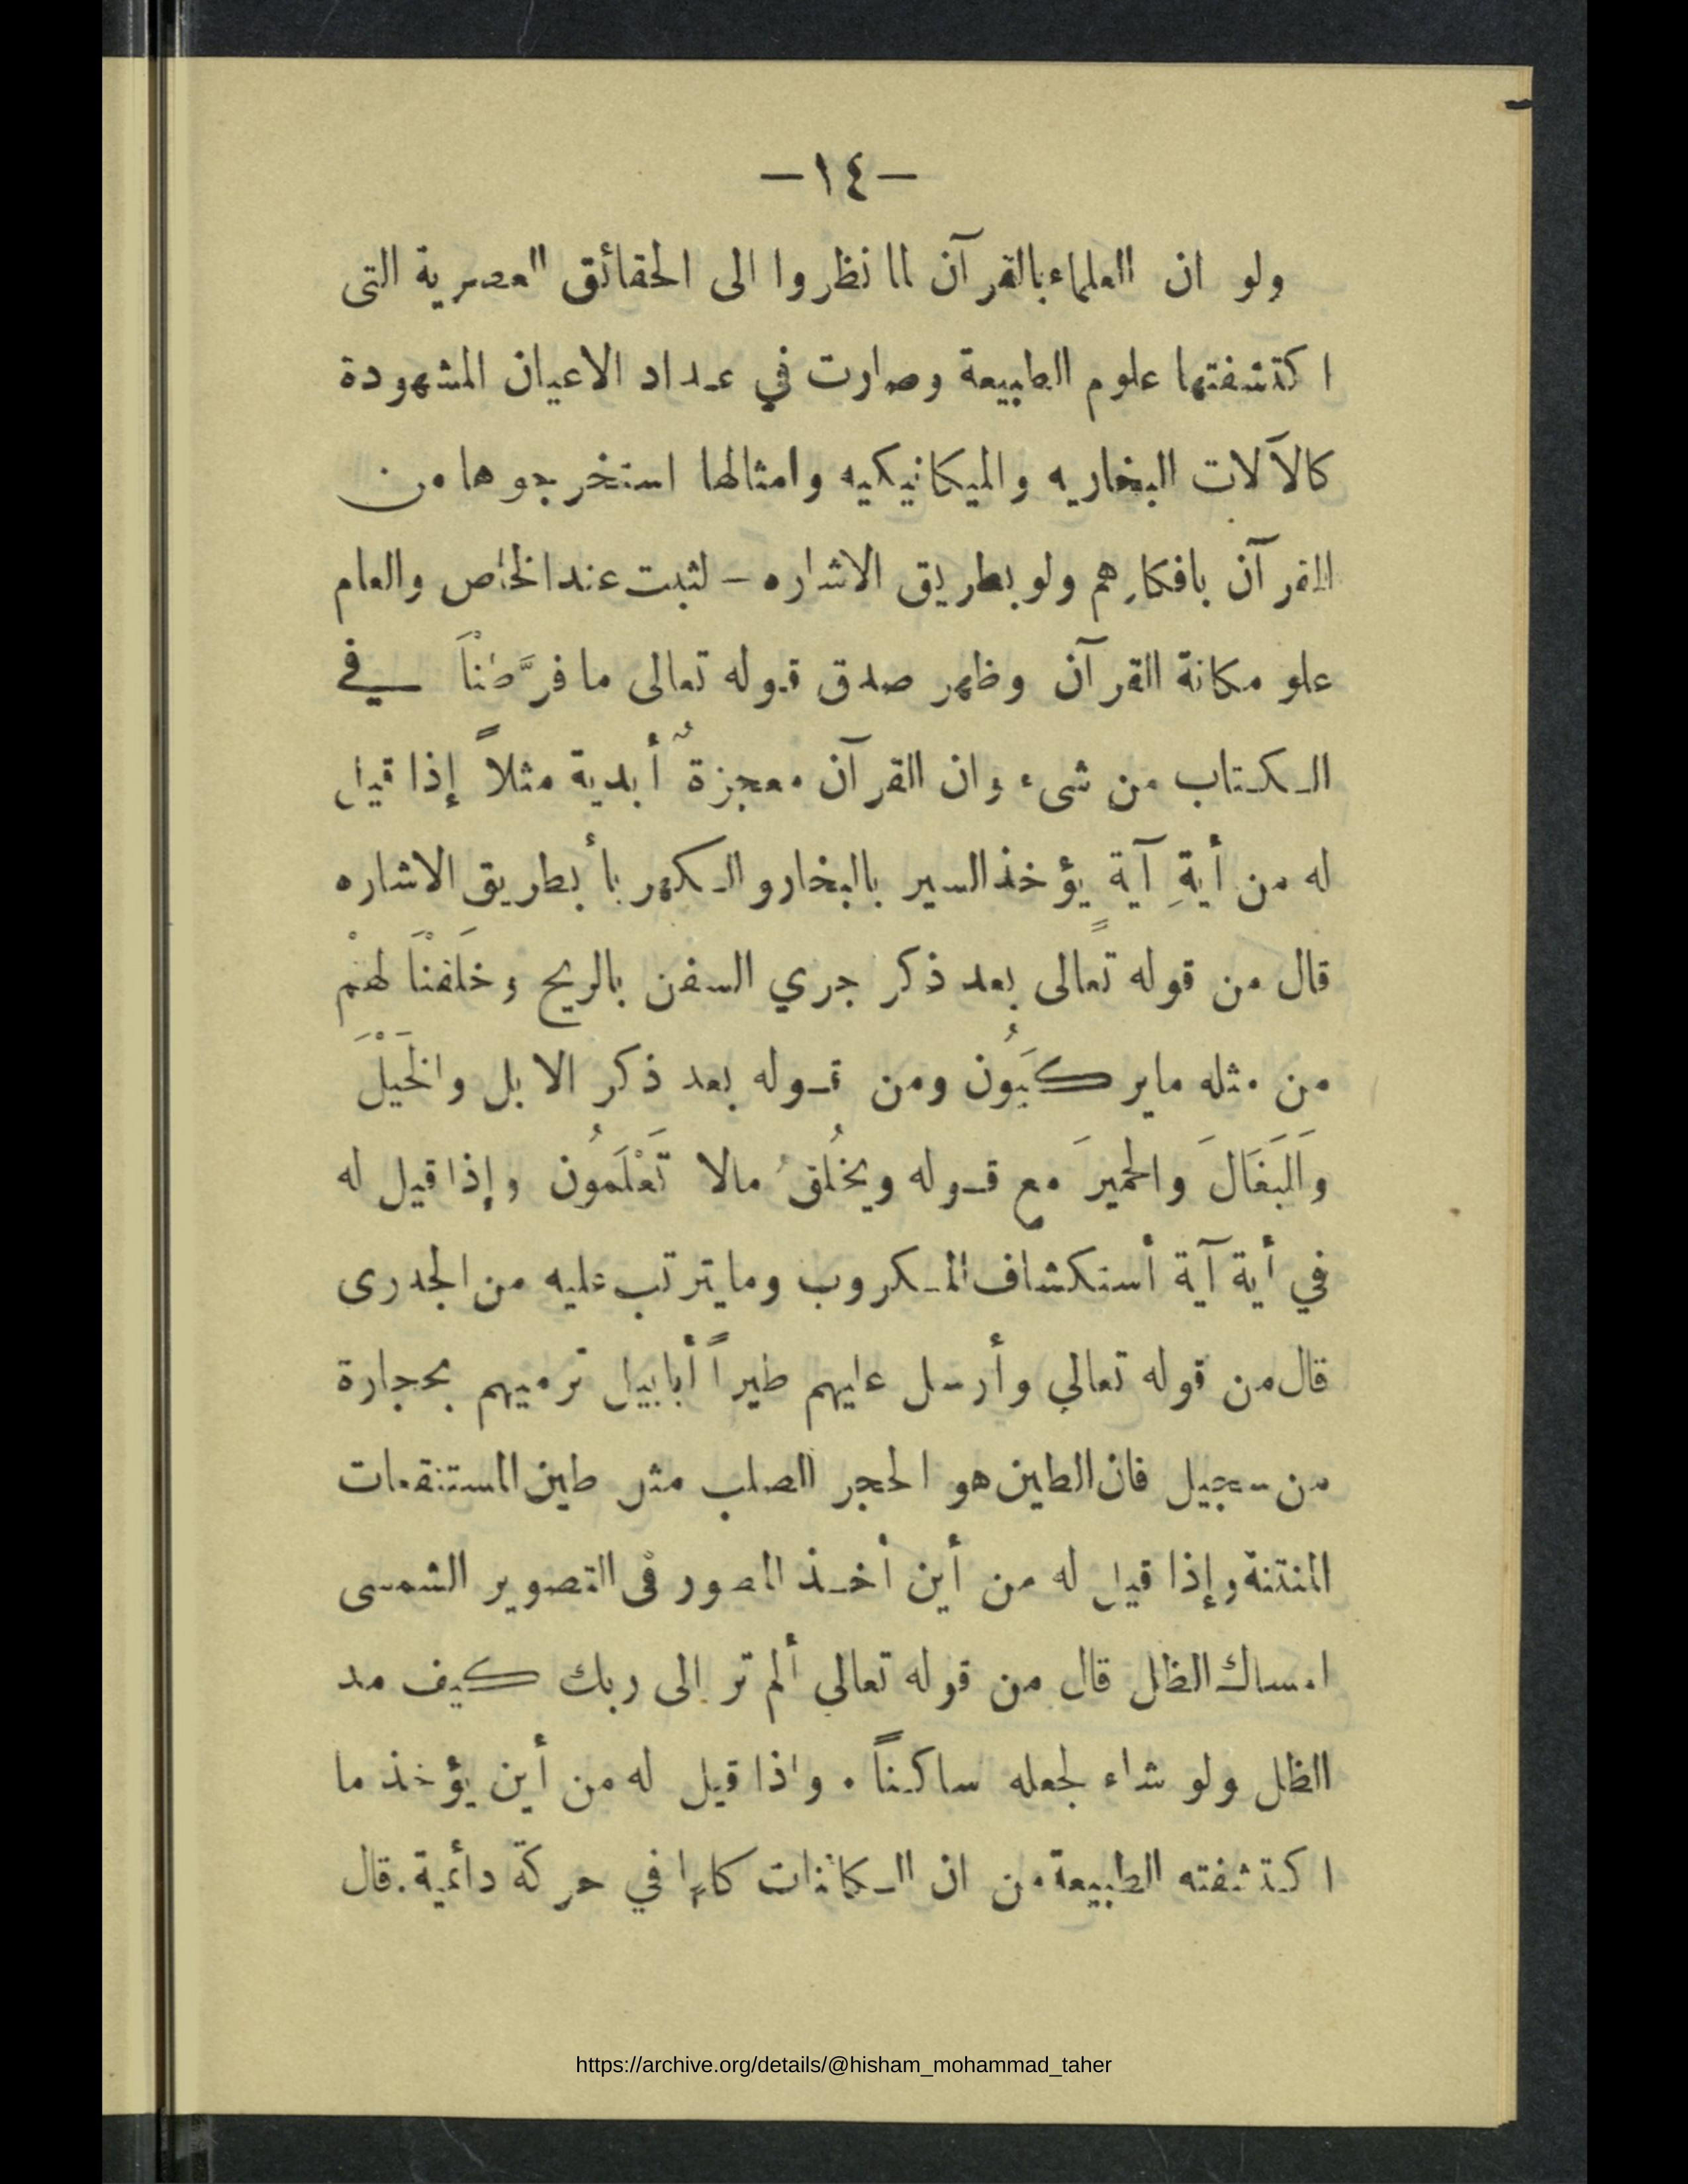 —١٤—
ولو ان العلماء بالقرآن لما نظروا الى الحقائق العصرية التى
اكتشفتها علوم الطبيعة وصارت في عداد الاعيان المشهودة
كالآلات البخاريه والميكانيكيه وامثالها استخرجوها من
القرآن بافكارهم ولو بطريق الاشاره – لثبت عند الخاص والعام
علو مكانة القرآن وظهر صدق قوله تعالى ما فرَّطْنَا في
الكتاب من شىء وان القرآن معجزةٌ أبدية مثلاً إذا قيل
له من أيةِ آيةٍ يؤخذ السير بالبخار والكهربا أبطريق الاشاره
قال من قوله تعالى بعد ذكر جري السفن بالريح وخَلَقْنَا لهمْ
من مثله ما يركَبُون ومن قوله بعد ذكر الابل والخَيْلَ
وَالبَغَالَ والحميرَ مع قوله ويخلُقُ مالا تَعْلَمُون وإذا قيل له
في أية آية أستكشاف المكروب وما يترتب عليه من الجدرى
قال من قوله تعالي وأرسل عليهم طيراً أبابيل ترميهم بحجارة
من سجيل فان الطين هو الحجر الصلب مثل طين المستنقعات
المنتنة وإذا قيل له من أين أخذ المصور في التصوير الشمسى
امساك الظل قال من قوله تعالي ألم تر إلى ربك كيف مد
الظل ولو شاء لجعله ساكناً . واذا قيل له من أين يؤخذ ما
اكتشفته الطبيعة من ان الكائنات كلها في حركة دائمية . قال
https://archive.org/details/@hisham_mohammad_taher